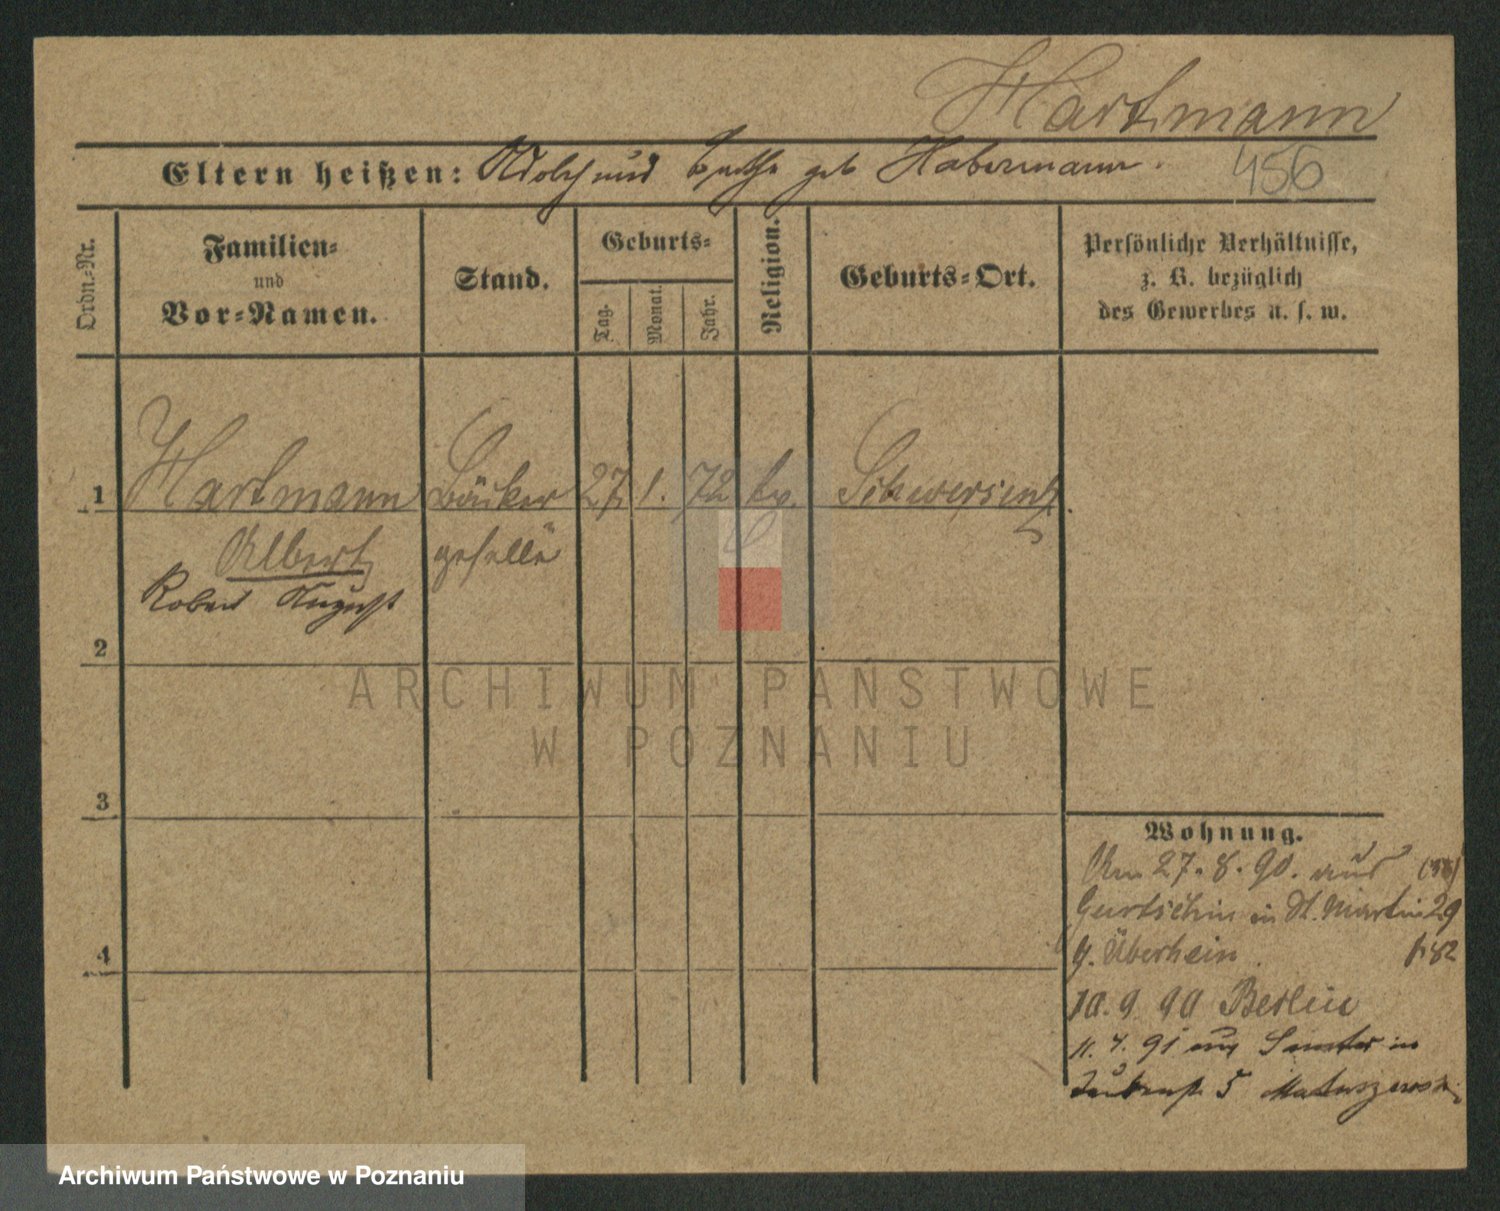 Hartmann
Eltern heißen: Adolf und Berthe geb Habermann.
456
Ordn.-Nr.
Familien-
und
Vor-Namen.
Stand.
Geburts-
Tag.
Monat.
Jahr.
Religion.
Geburts-Ort.
Persönliche Verhältnisse,
z. B. bezüglich
des Gewerbes u. s. w.
1 Hartmann Bäcker 27 1. 72 Schwersenz
Albert geselle
Robert August
2
3
4
Wohnung.
Am 27. 8. 90. aus
Gurtschin in St. Martin 29
b. Überhein.
10. 9 90 Berlin
11. 4. 91 aus Samter in
5 Matuszewski
ARCHIWUM PAŃSTWOWE
W POZNANIU
Archiwum Państwowe w Poznaniu